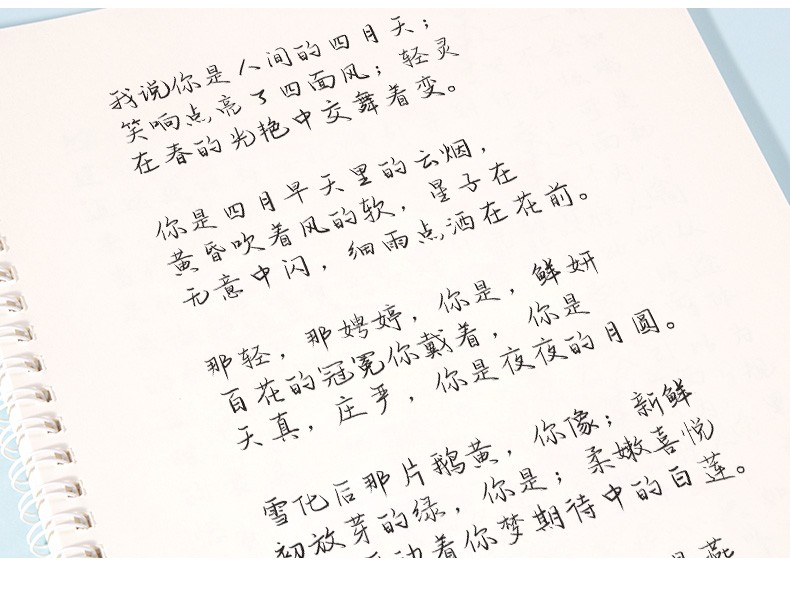 我说你是人间的四月天；
笑响点亮了四面风；轻灵
在春的光艳中交舞着变。
你是四月早天里的云烟，
黄昏吹着风的软，星子在
无意中闪，细雨点洒在花前。
那轻，那娉婷，你是，鲜妍
百花的冠冕你戴着，你是
天真，庄严，你是夜夜的月圆。
雪化后那片鹅黄，你像；新鲜
初放芽的绿，你是；柔嫩喜悦
动着你梦期待中的白莲。
是燕